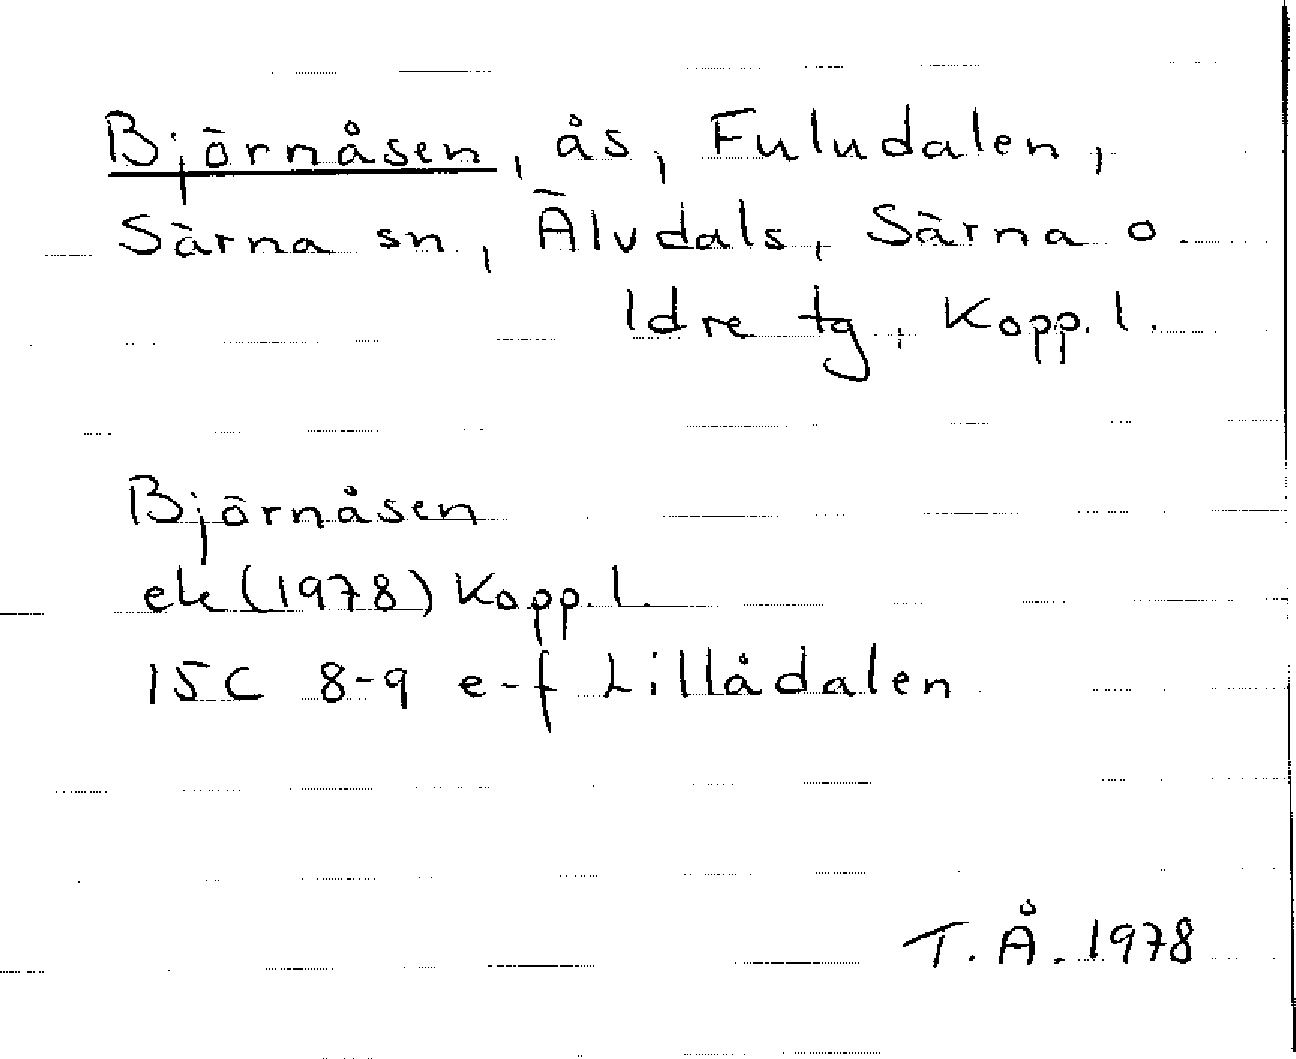 Björnåsen, ås, Fuludalen,
Särna sn., Älvdals, Särna o
Idre tg, Kopp. l.
Björnåsen
ek (1978) Kopp. l.
15C 8-9 e-f Lillådalen
T. Å. 1978